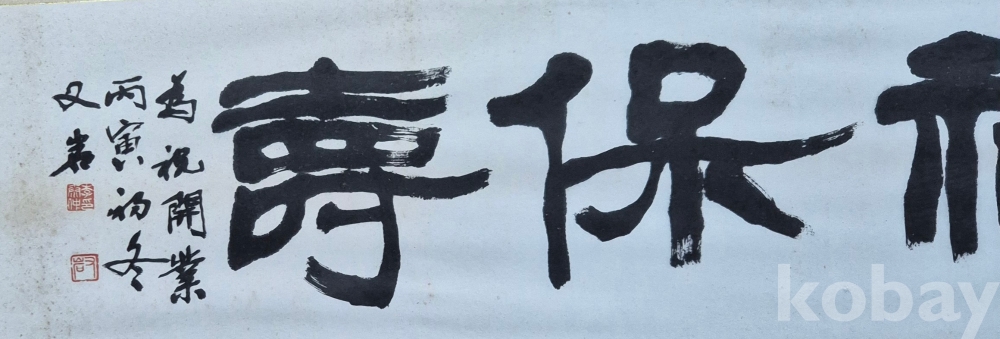 保壽
為祝開業
丙寅初冬
又岩
kobay